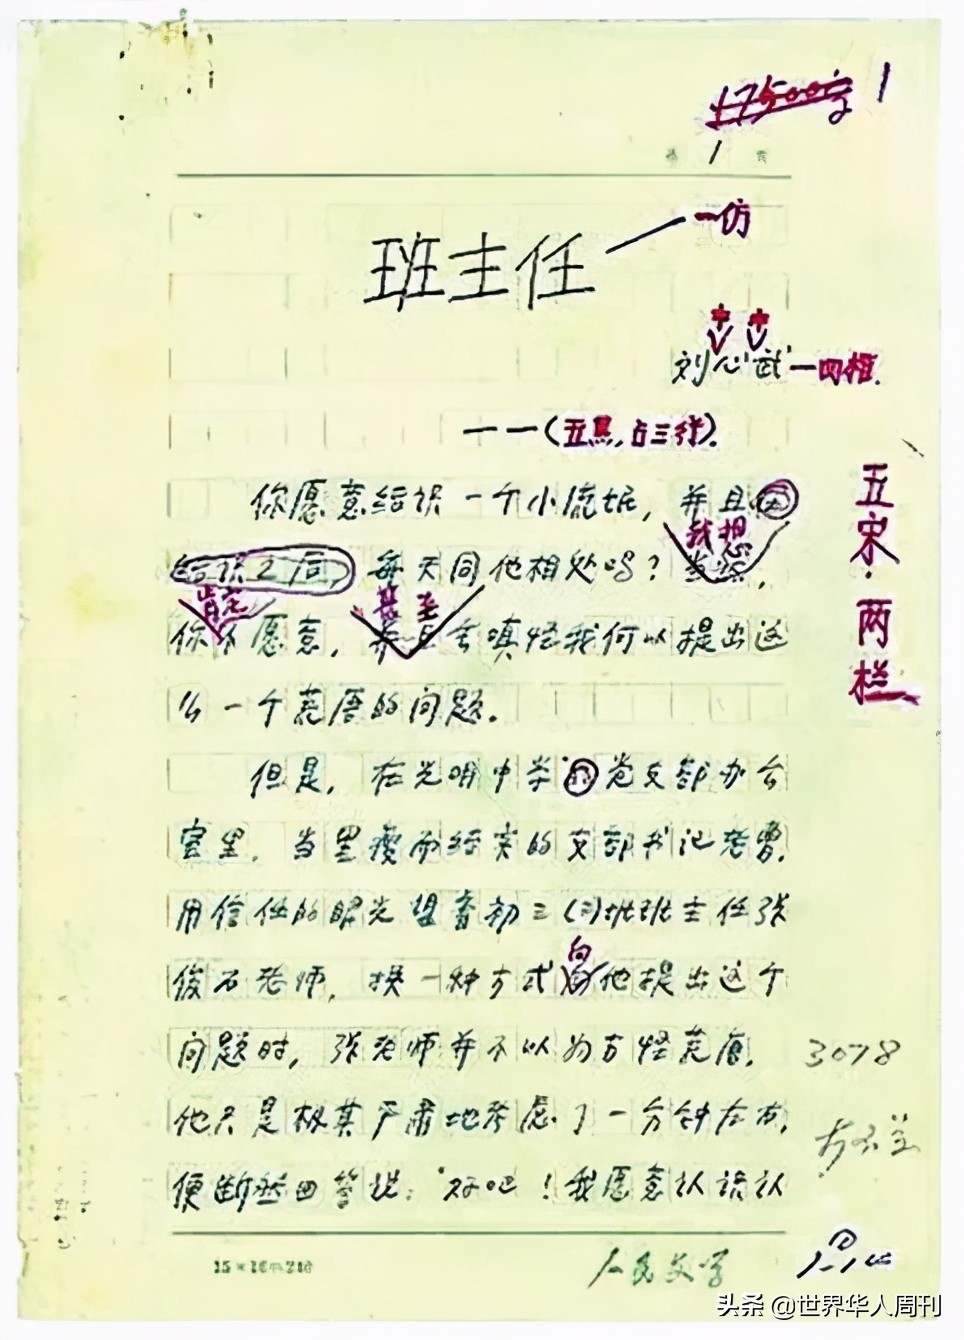 17500字 1
1
班主任 一仿
刘心武 一四楷.
一 一(五黑,占三行).
你愿意结识一个小流氓, 并且
我想
结识之后, 每天同他相处吗? 当然,
肯定 甚至
你不愿意, 并且会嗔怪我何以提出这
么一个荒唐的问题.
五宋.两栏
但是, 在光明中学的党支部办公
室里. 当黑瘦而结实的支部书记老曹,
用信任的眼光望着初三(三)班班主任张
向
俊石老师, 换一种方式向他提出这个
问题时, 张老师并不以为古怪荒唐.
3078
他只是极其严肃地考虑了一分钟左右,
便断然回答说: "好吧! 我愿意认识认
15×16=240
人民文学
头条 @世界华人周刊